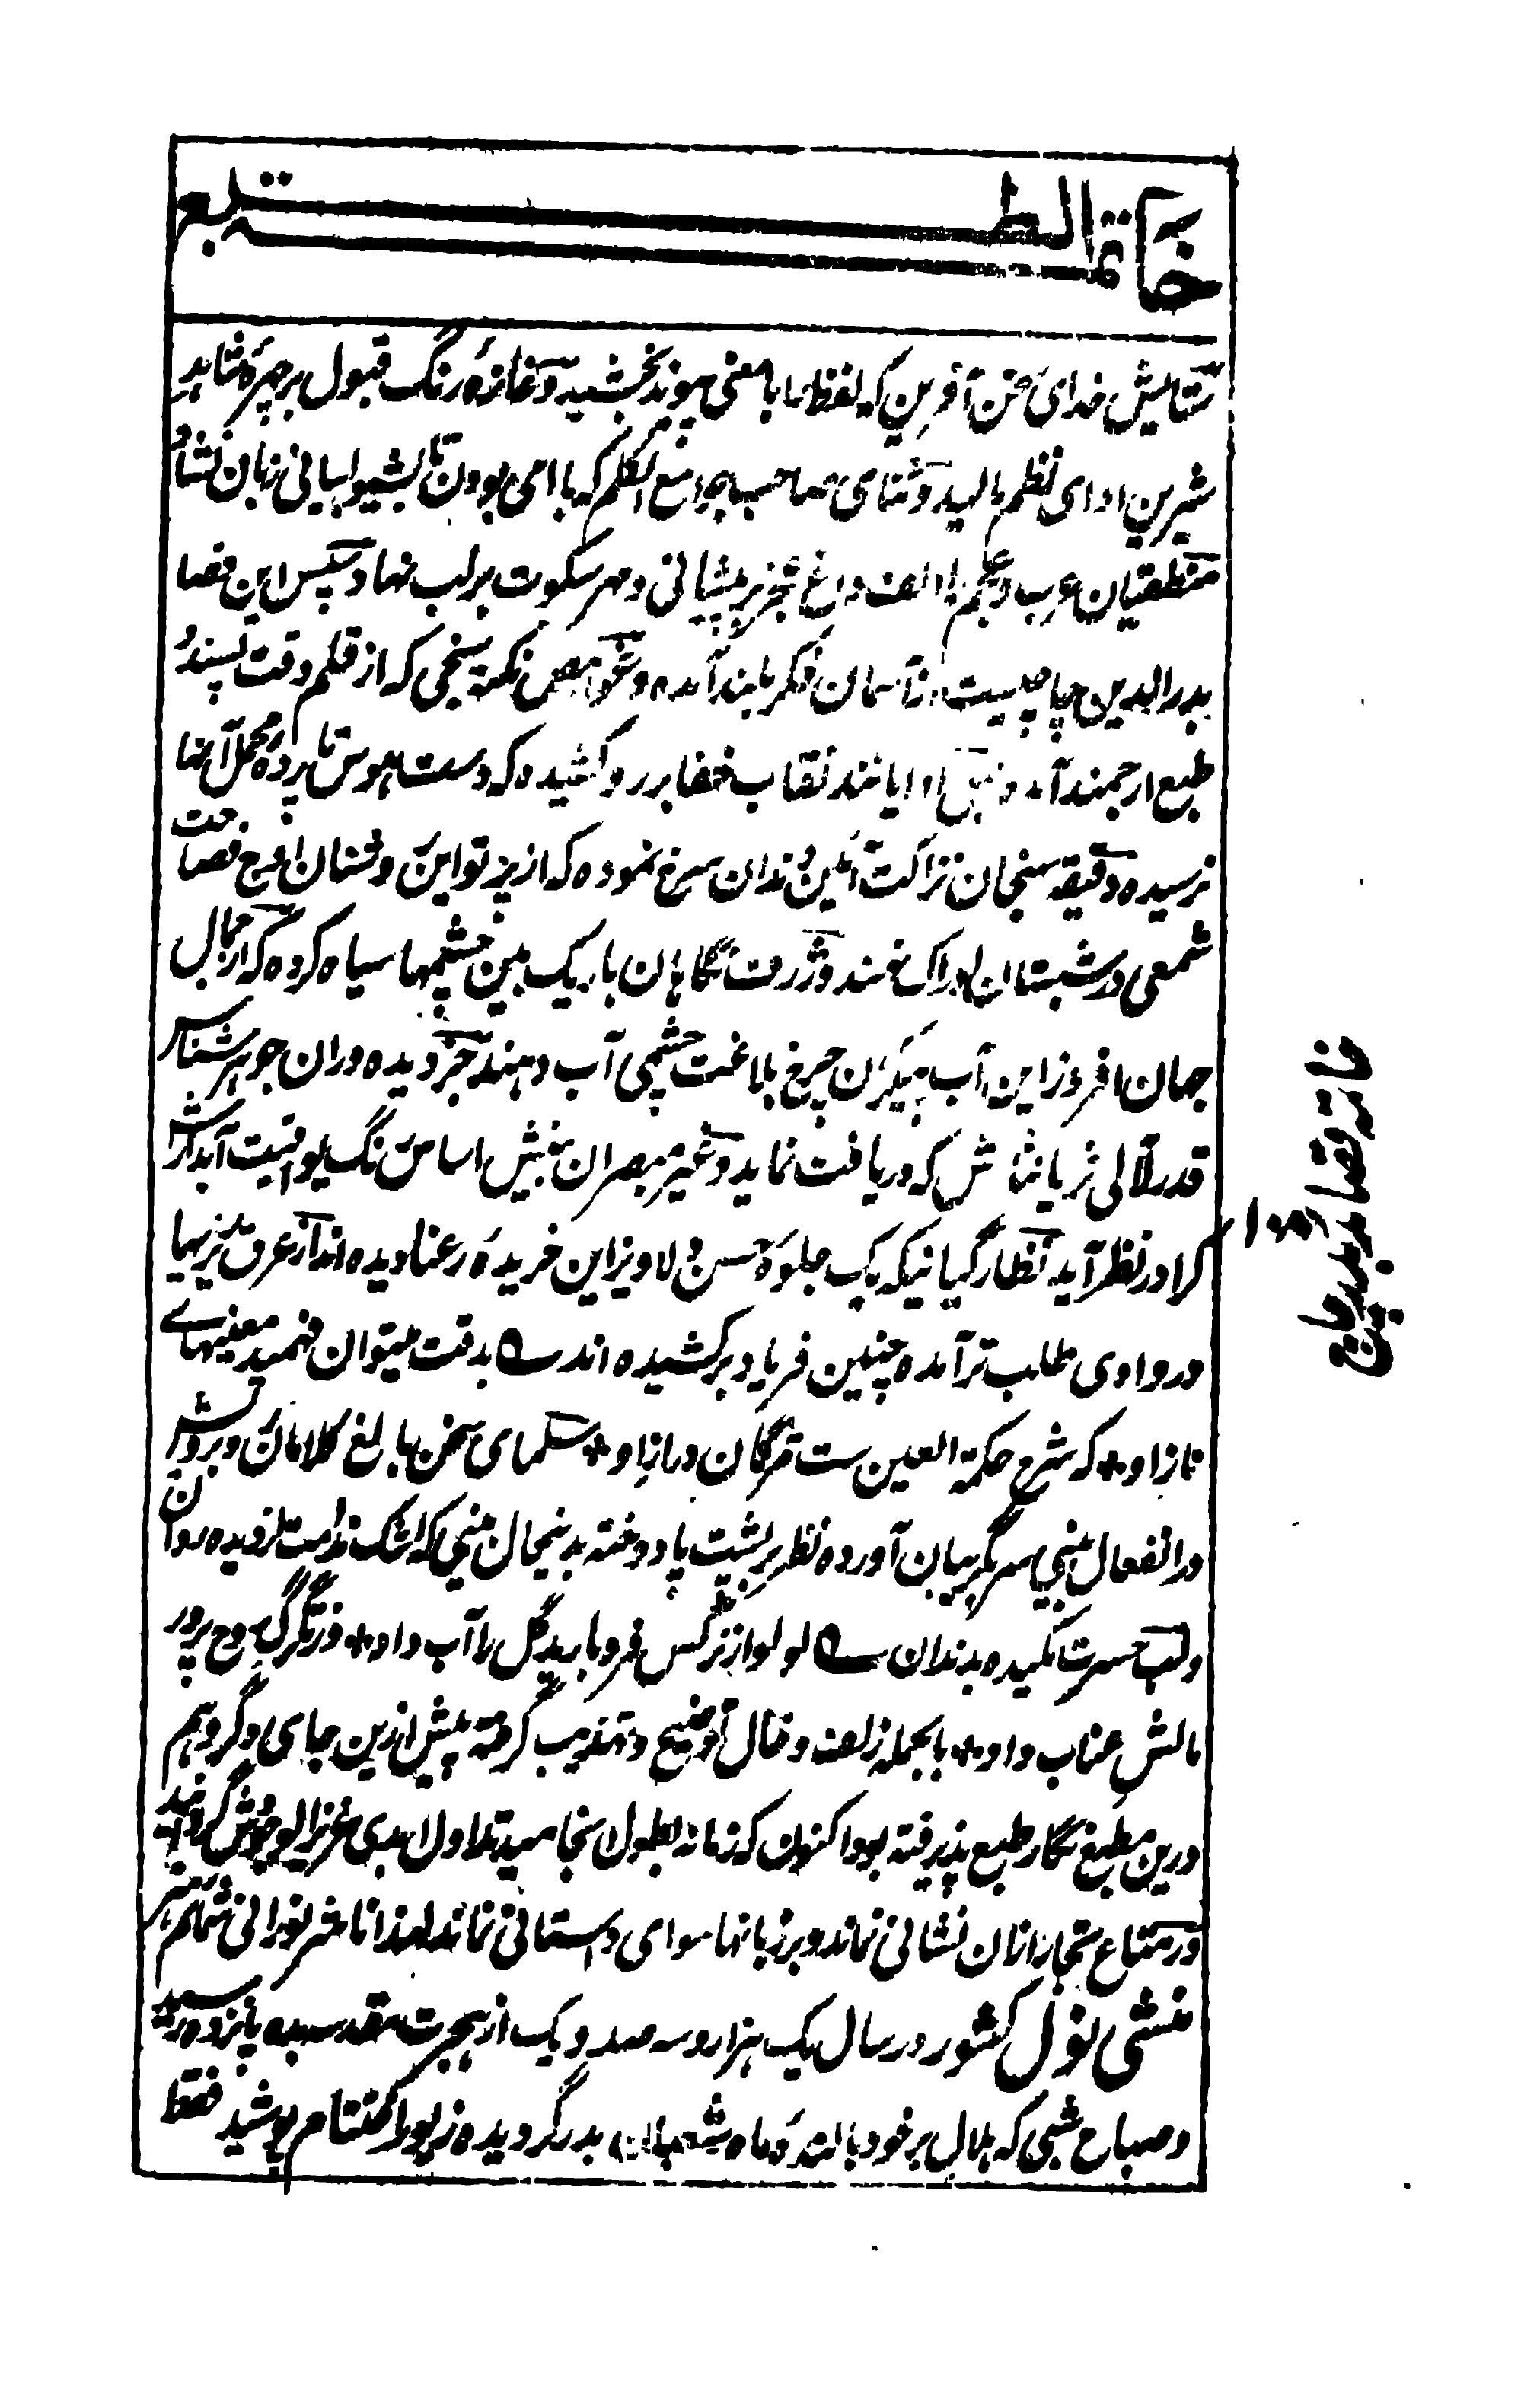 خاتمة الطبع
ستایش خدای سخن آفرین که لفظ را با معنی پیوند بخشیده و غازهٔ رنگ قبول بر چهرهٔ شاهد
شیرین ادای نظم مالید و ثنای صاحب جوامع الکلم که با امی بودن تا بشیوا بیانی زبان کشاد
منطقیان عرب و عجم را الف داغ عجز بر پیشانی و مهر سکوت بر لب نهاد سپس این قصا
بدر الدین چاچیست از آسمان فکر بلند آمده و غوامض نکته سنجی که از قلم دقت پسند
طبع ارجمند آمده اوایانند نقاب خفا بر رو کشیده که دست هوس تا پردهٔ محمل آنها
نرسیده دقیقه سنجان نزاکت آئین دندان سرخ نموده که از پرتو این وشنان اوج فصاحت
شمعی در شبستان ادراک نهند و ژرف نگاهان باریک بین چشمها سیاه کرده که از جمال
جهان افروز این آب پیکران چرغ بلاغت چشمی آب دهند جز دیده وران جوهر شناس
قدر لآلی ثریا نثارش که دریافت نماید و غیر مبصران بینش اساس سنگ یواقیت آبدارش
کرا در نظر آید نظارگیانیکه یک جلوهٔ حسن دلاویز این خریدهٔ رعنا دیده اند از عرق ریزیها
در وادی طلب تر آمده چنین فریاد بر کشیده اند ؎ بدقت میتوان فهمید معنیهای
ناز او * که شرح حکمة العین ست مژگان دراز او * سلمای سخن با بالغ کلامان دوبرویش
در انفعال بینی سر بگریبان آورده نظر بر پشت پا دوخته بدینحال بینی که اشک ندامت از دیده روان
ولب حسرت مکیده بدندان ؎ لولو از نرگس فرو بارید گل را آب داد * وز تگرگ روح پرور
مالش عناب داد * بالجمله زلف و خال توضیح و تهذیب گرفته پیش ازین جای دگر و هم
درین مطبع نگار طبع پذیرفته بود اکنون که زمانه بطول انجامید تداول ابدی عزیز الوجودش گردانید
و در متاع تجار ازان نشانی نماند و بر زبانها سوای داستانی نماند لهذا ناشر نورانی شمایم
منشی نول کشور در سال یک هزار و سه صد و یک از هجرت مقدسه به پانزدهم رسید
و صباح شبی که هلال بر خود بالندهٔ ماه شعبان بدر گردیده زیور اختتام پوشید فقط
خاتمه قصائد بدر چاچ
۱۰۳